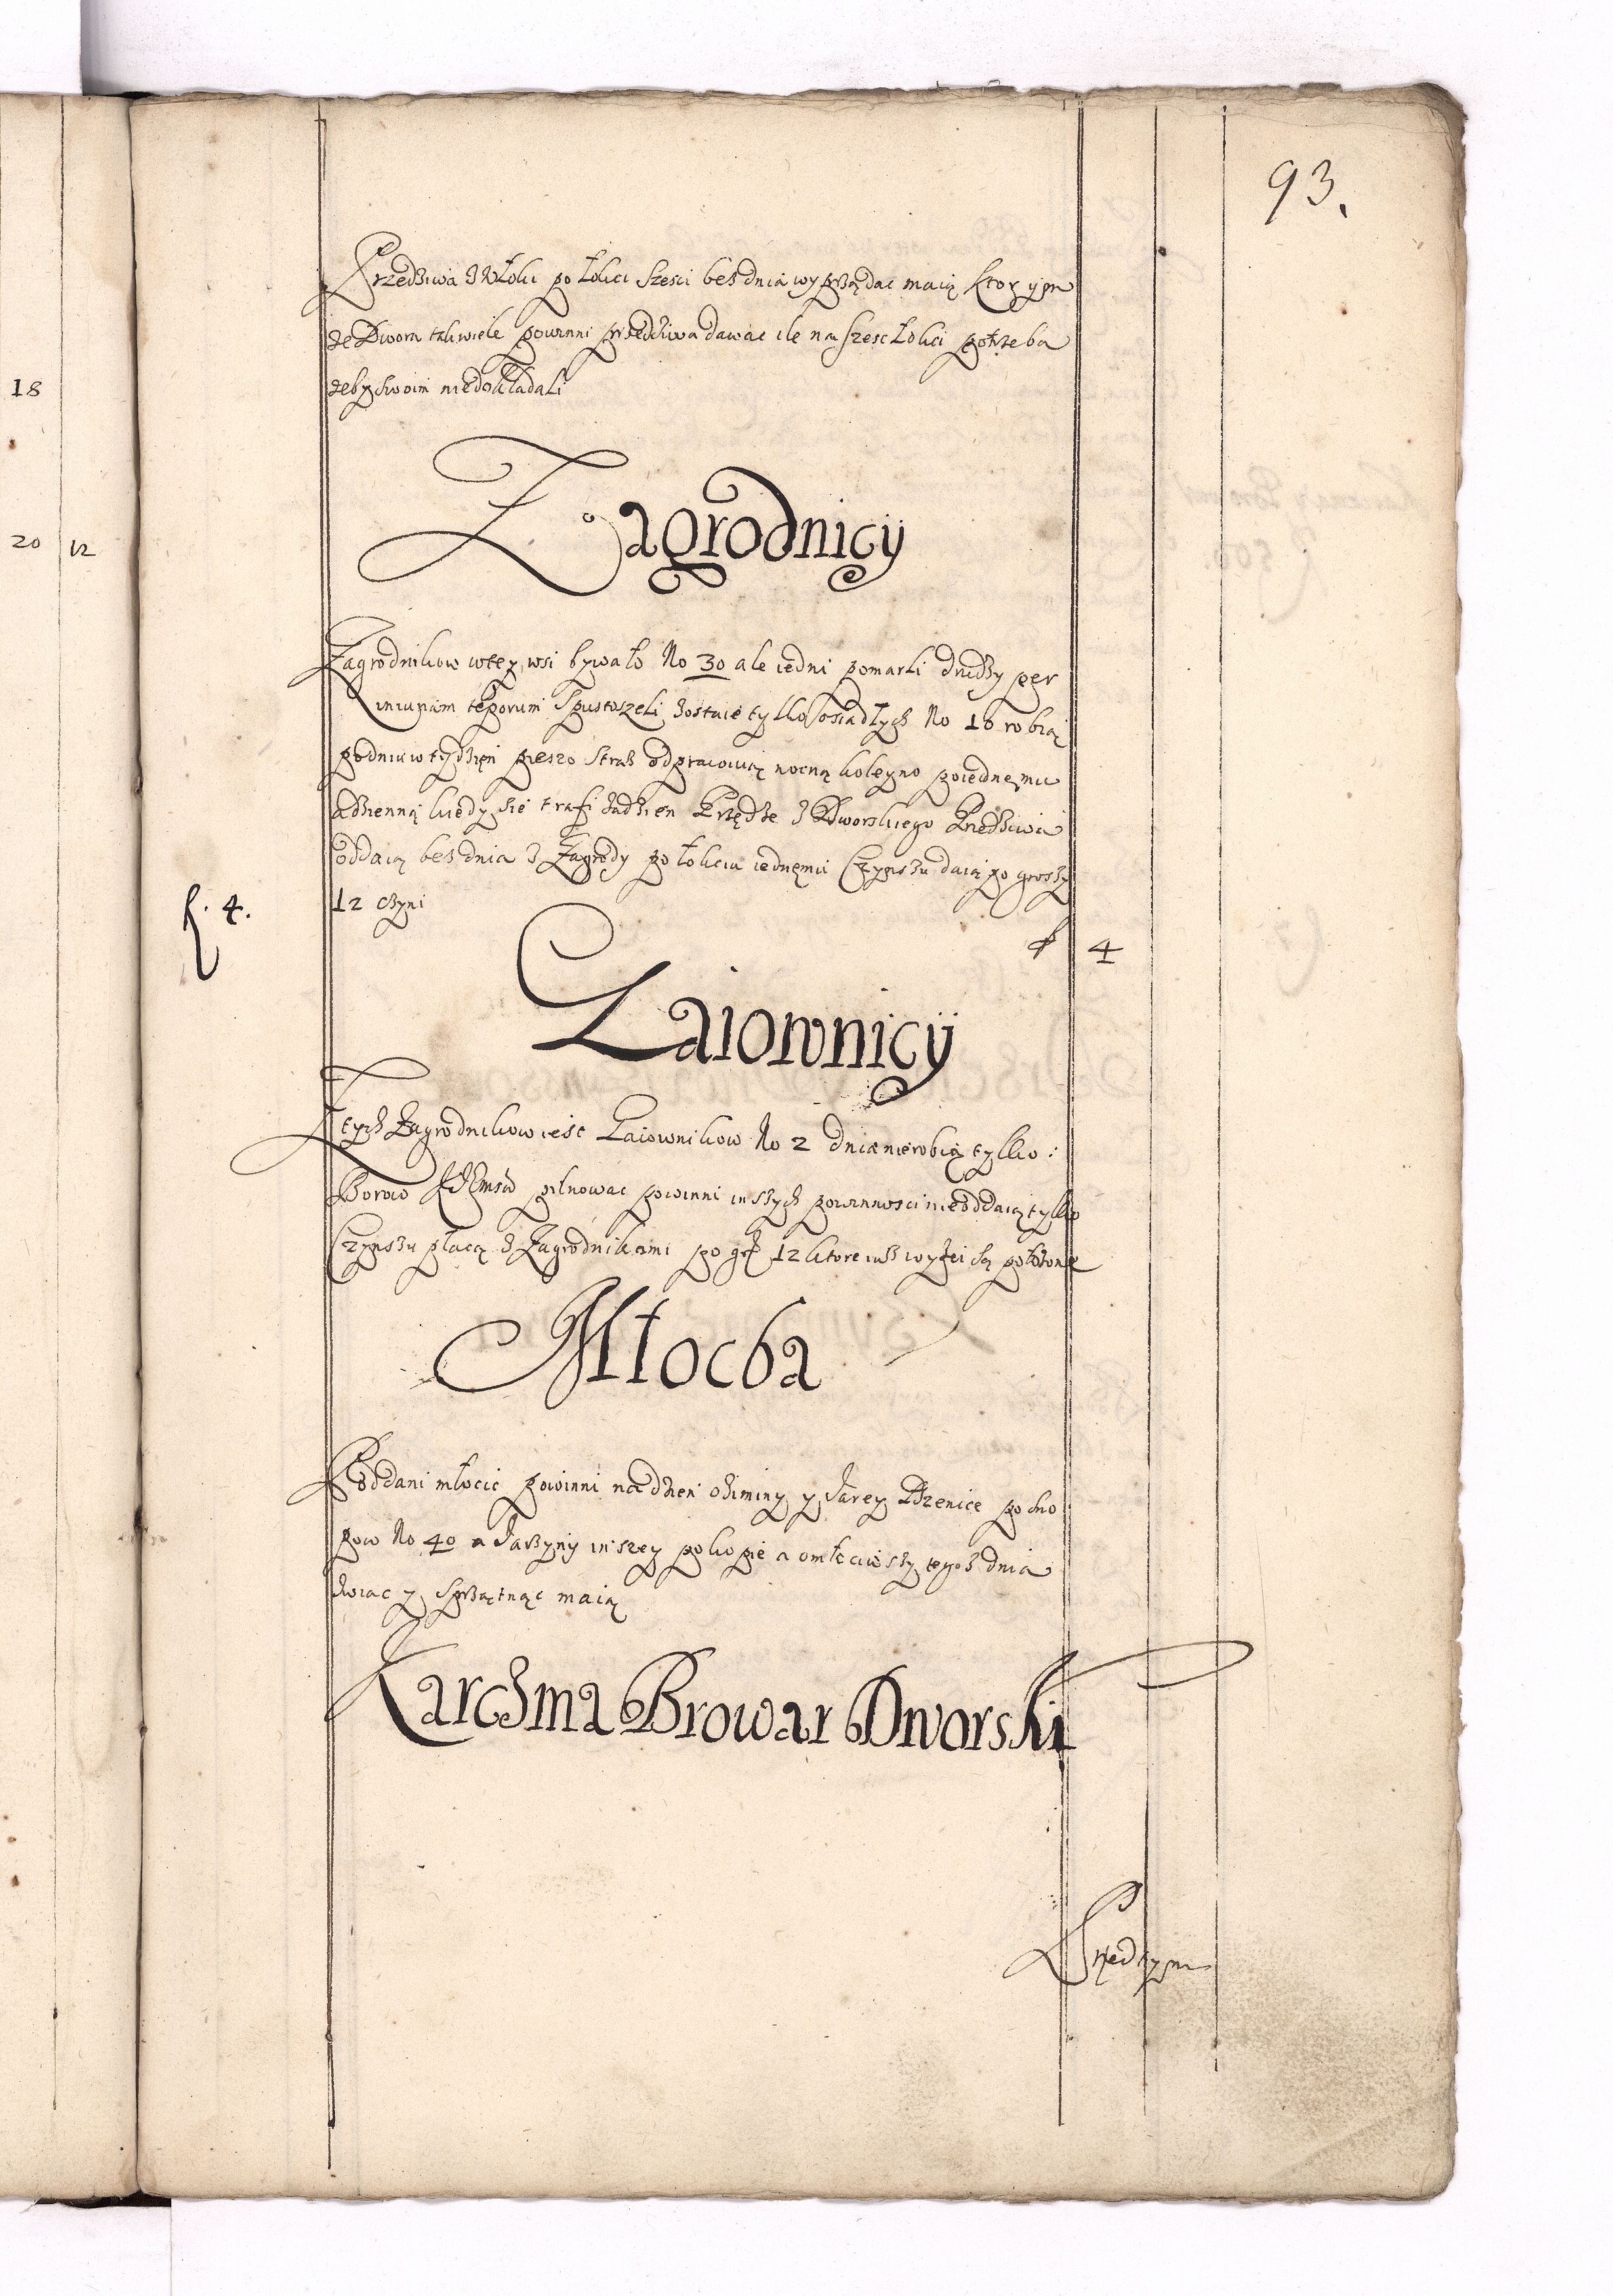 93.
18
20 12
Przedziwa z Włoki po Łokci szesci bez dnia wyprządac maią ktorym
ze Dworu tak wiele powinni przedziwa dawac ile na szesc Łokci potrzeba
zeby swoim niedokładali
Zagrodnicy
Zagrodnikow wtey wsi bywało No 30 ale iedni pomarli drudzy per
iniuriam teporum spustoszeli zostaie tylko osiadłych No 10 robią
podniu w tydzięn pieszo straz odprawuią nocną koleyno poiednęmu
adzienną kiedy sie trafi zadzien Przędze z Dworskiego Przedziwa
oddaią bez dnia z Zagrody po łokciu iednęmu Czynszu daią po groszy
12 czyni
f. 4.
f 4
Laiownicy
Z tych Zagrodnikow iest Laiownikow No 2 dnia nierobią tylko
Borow pilnowac powinni inszych powinnosci nieoddaią tylko
Czynszu płacą z Zagrodnikami po gr 12 ktore iusz wyzei są połozone
Młocba
Poddani młocic powinni na dzien oziminy y Jarey Pszenice po sno
pow No 40 a Jarzyny inszey po kopie a omłociwszy tegoz dnia
zwiac y sprzątnąc maią
Karczma Browar Dworski
Przedtym